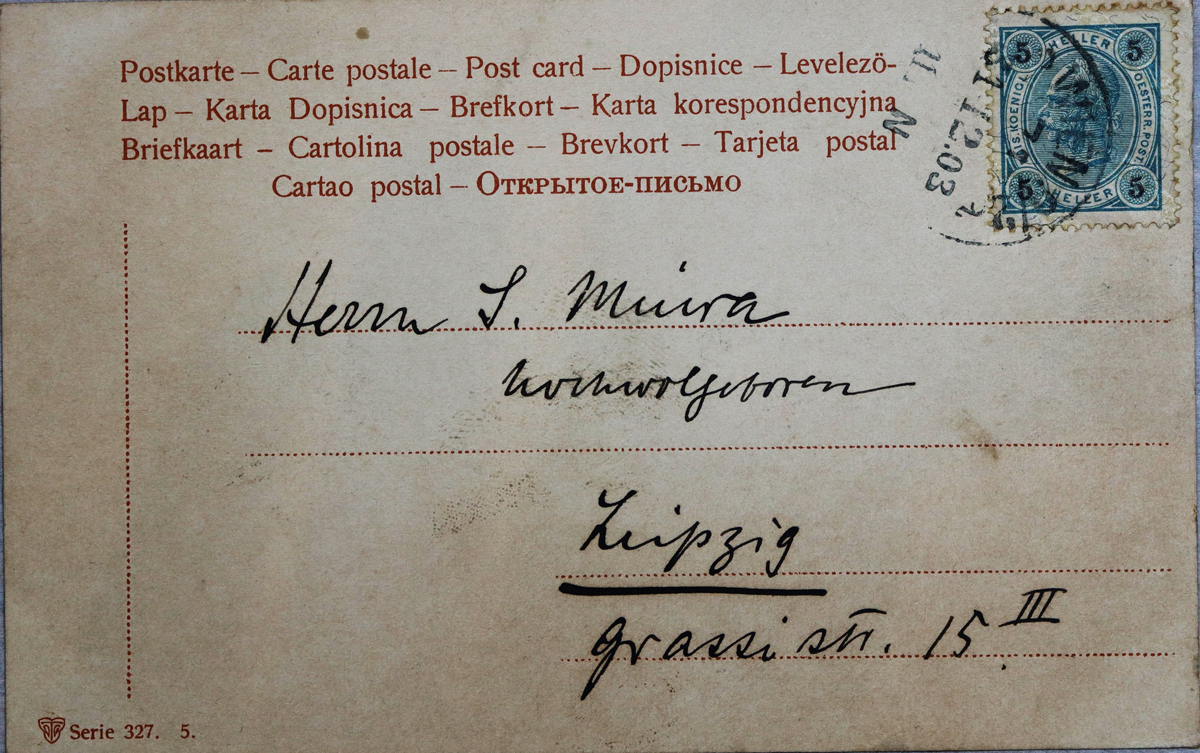 Postkarte – Carte postale – Post card – Dopisnice – Levelezö-
Lap – Karta Dopisnica – Brefkort – Karta korespondencyjna
Briefkaart – Cartolina postale – Brevkort – Tarjeta postal
Cartao postal – Открытое-письмо
5 HELLER 5
KAIS.KOENIGL. OESTERR.POST.
5 HELLER 5
WIEN
12.03
Herrn S. Miura
Hochwolgeboren
Leipzig
Grassi str. 15 III
Serie 327. 5.